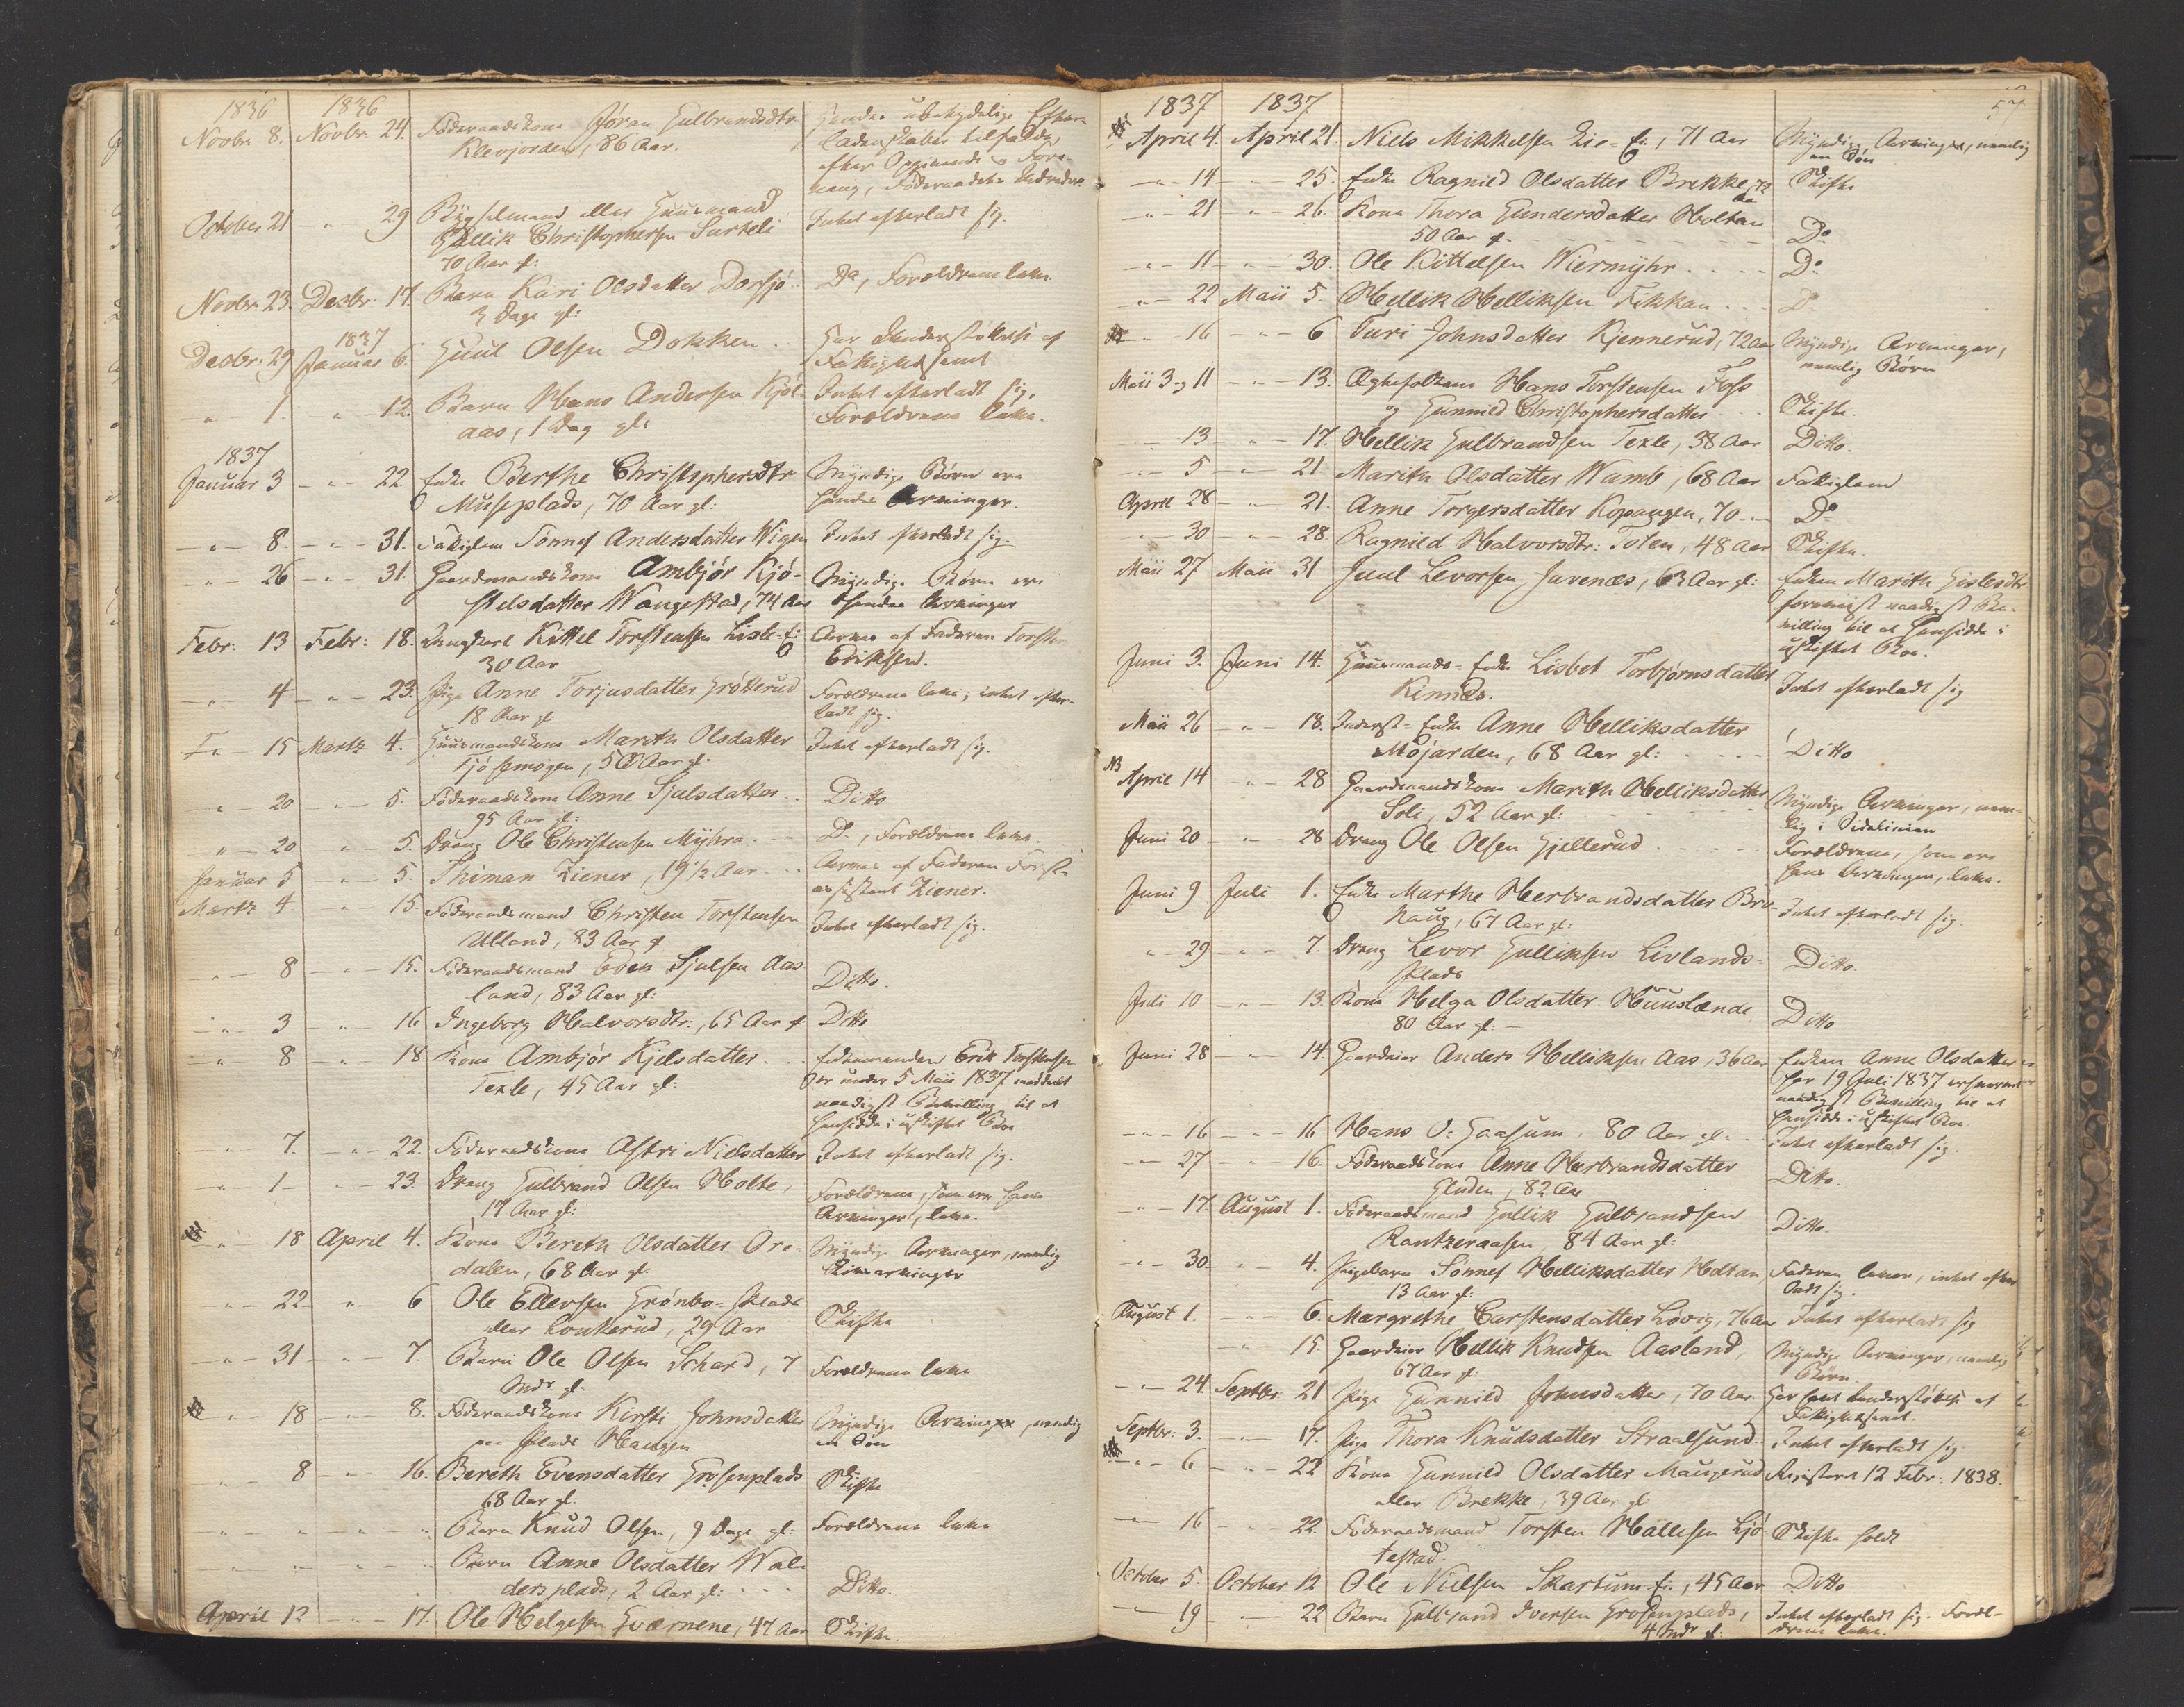 1836 1836
Novbr 8. Novbr. 24. Föderaadskone Jöran Gulbrandsdtr Hendes ubetydelige Efter-
Klevjordet, 86 Aar. ladenskaber tilfaldt,
efter Opgivende
Föderaadets Udreder.
October 21 - " - 29 Bÿgselmand eller Huusmand Intet efterladt sig.
Gullik Christophersen Surteli
70 Aar gl:
Novbr. 23. Decbr. 17. Barn Kari Olsdatter Dorsjö. Do, Forældrene leve.
3 Dage gl:
1837
Decbr. 29 Januar 6. Juul Olsen Dokken. Har Understöttelse af
Fattigvæsenet
" 1. " 12. Barn Hans Andersen Kjöl- Intet efterladt sig.
aas, 1 Dag gl: Forældrene leve.
1837
Januar 3 - " - 22. Enke Berthe Christophersdtr Mÿndige Börn ere
Museplads, 70 Aar gl: hendes Arvinger.
- " - 8. - " - 31. Fattiglem Sönnef Andersdatter Wigen Intet efterladt sig.
- " - 26 - " - 31. Gaardmandskone Ambjör Kjö- Mÿndige Börn ere
stelsdatter Wangestad, 74 Aar hendes Arvinger
Febr: 13 Febr: 18. Ungkarl Kittel Torstensen Lisle-Ei Arves af Faderen Torsten
30 Aar Eriksen.
- " - 4 - " - 23. Pige Anne Torjusdatter Gröterud Forældrene leve; intet efter-
18 Aar gl: ladt sig.
- " - 15 Martz 4. Huusmandskone Marith Olsdatter Intet efterladt sig.
Fjösemogen, 50 Aar gl.
" 20 - " - 5. Föderaadskone Anne Sjulsdatter .. Ditto
95 Aar gl:
" 20 " 5. Dreng Ole Christensen Mÿhra. Do, Forældrene leve.
Januar 5 - " - 5. Thiman Ziener, 19 1/2 Aar .. Arves af Faderen Forst-
Martz 4. " 15. Föderaadsmand Christen Torstensen assistent Ziener.
Ulland, 83 Aar gl Intet efterladt sig.
- " 8 - " - 15. Föderaadsmand Even Sjulsen Aas-
land, 83 Aar gl: Ditto.
- " - 3 - " - 16 Ingeborg Halvorsdtr:, 65 Aar gl Ditto
" 8 - " 18. Kone Ambjör Kjelsdatter .. Enkemanden Erik Torstensen
Texle, 45 Aar gl: er under 5 Maii 1837 meddeelt
naadigst Bevilling til at
hensidde i uskiftet Boe
" 7. - " - 22. Föderaadskone Astri Nielsdatter Intet efterladt sig.
" 1 - " - 23. Dreng Gulbrand Olsen Holte, Forældrene, som ere hans
17 Aar gl: Arvinger, leve.
" 18 April 4. Kone Bereth Olsdatter Ore- Mÿndige Arvinger, nemlig
dalen, 68 Aar gl: Livsarvinger
- " - 22 - " - 6 Ole Ellevsen Grönbo-Plads Skifte
eller Loukerud, 29 Aar
- " - 31 - " - 7. Barn Ole Olsen Schard, 7 Forældrene leve
Mdr gl.
- " - 18 - " - 8. Föderaadskone Kirsti Johnsdatter Mÿndige Arvinger, nemlig
paa Plads Haugen en Sön
- " - 8 - " - 16. Bereth Evensdatter Grosenplads Skifte
68 Aar gl:
- " - - " - Barn Knud Olsen, 9 Dage gl: Forældrene leve
- " - - " - Barn Anne Olsdatter Wal-
dersplads, 2 Aar gl: Ditto.
April 12 - " - 17. Ole Helgesen Qværnene, 47 Aar Skifte.
57
1837 1837
April 4. April 21. Niels Mikkelsen Lie-Ei, 71 Aar Mÿndige Arvinger, nemlig
en Sön
- " - 14 - " - 25. Enke Ragnild Olsdatter Brekke, 72 Skifte
- " - 21 - " - 26. Kone Thora Gundersdatter Holtan
50 Aar gl. Do
- " - 11 - " - 30. Ole Kittelsen Wiermÿhr.... Do
- " - 22 Maii 5. Hellik Helliksen Fikkan .. Do
- " - 16 - " - 6 Turi Johnsdatter Kjennerud, 72 Aar Mÿndige Arvinger,
nemlig Börn
Maii 3 og 11 - " - 13. Ægtefolkene Hans Torstensen Foss
og Gunnild Christophersdatter .. Skifte.
- 13 - " - 17. Hellik Gulbrandsen Texle, 38 Aar Ditto.
- 5 - " - 21. Marith Olsdatter Wamb, 68 Aar Fattiglem
April 28 - " - 21. Anne Torgersdatter Kopangen, 70 " Do
- 30 - " - 28. Ragnild Halvorsdtr: Toten, 48 Aar Skifte.
Maii 27 Maii 31 Juul Levorsen Juvenæs, 63 Aar gl: Enken Marith Gislesdtr
foreviist naadigst Be-
villing til at hensidde i
uskiftet Boe.
Juni 3. Juni 14. Huusmands-Enke Lisbet Torbjörnsdatter Intet efterladt sig
Kinnæs.
Maii 26 - " - 18. Inderst-Enke Anne Helliksdatter
Möjarden, 68 Aar gl: .... Ditto
NB April 14 - " - 28 Gaardmandskone Marith Helliksdatter Mÿndige Arvinger, nem-
Soli, 52 Aar gl: lig i Sidelinien
Juni 20 - " - 28 Dreng Ole Olsen Gjellerud .... Forældrene, som ere
hans Arvinger, leve.
Juni 9 Juli 1. Enke Marthe Herbrandsdatter Bro- Intet efterladt sig.
haug, 67 Aar gl:
" 29 - " - 7. Dreng Levor Gulliksen Livlands- Ditto.
Plads
Juli 10 - " - 13. Kone Helga Olsdatter Huuslænde
80 Aar gl. - Ditto
Juni 28 - " - 14. Gaardeier Anders Helliksen Aas, 36 Aar Enken Anne Olsdatter
har 19 Juli 1837 erhvervet
naadigst Bevilling til at
hensidde i uskiftet Boe.
- " - 16 - " - 16 Hans O: Gaasum, 80 Aar gl. Intet efterladt sig.
- " - 27 - " - 16. Föderaadskone Anne Herbrandsdatter
Gluden, 82 Aar Ditto.
- " - 17. August 1. Föderaadsmand Gullik Gulbrandsen Ditto
Rantzeraasen 84 Aar gl:
- " - 30 - " - 4. Pigebarn Sönnef Helliksdatter Holtan Faderen lever, intet efter-
13 Aar gl: ladt sig.
August 1. - " - 6. Margrethe Carstensdatter Lövig, 76 Aar Intet efterladt sig
- " - 15. Gaardeier Hellik Knudsen Aasland, Mÿndige Arvinger, nemlig
67 Aar gl: Börn.
- " - 24. Septbr. 21 Pige Gunnild Johnsdatter, 70 Aar. Har havt Understöttelse af
Fattigvæsenet.
Septbr. 3. - " - 17. Pige Thora Knudsdatter Straalsund. Intet efterladt sig
- " - 6 - " - 22 Kone Gunnild Olsdatter Maugerud Registeret 12 Febr: 1838.
eller Brekke, 39 Aar gl
- " 16 - " - 22. Föderaadsmand Torsten Hallesen Ljö- Skifte holdt
testad.
October 5. October 12 Ole Nielsen Skartum-Ei, 45 Aar Ditto
- 19 - " - 22 Barn Gulbrand Iversen Grosenplads, Intet efterladt sig. Foræl-
4 Mdr gl: drene leve.